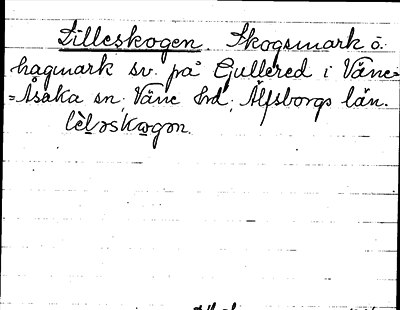 Lilleskogen. Skogsmark o.
hagmark sv. på Gullered i Väne-
=Åsaka sn, Väne hd, Älfsborgs län.
lèləskogən.